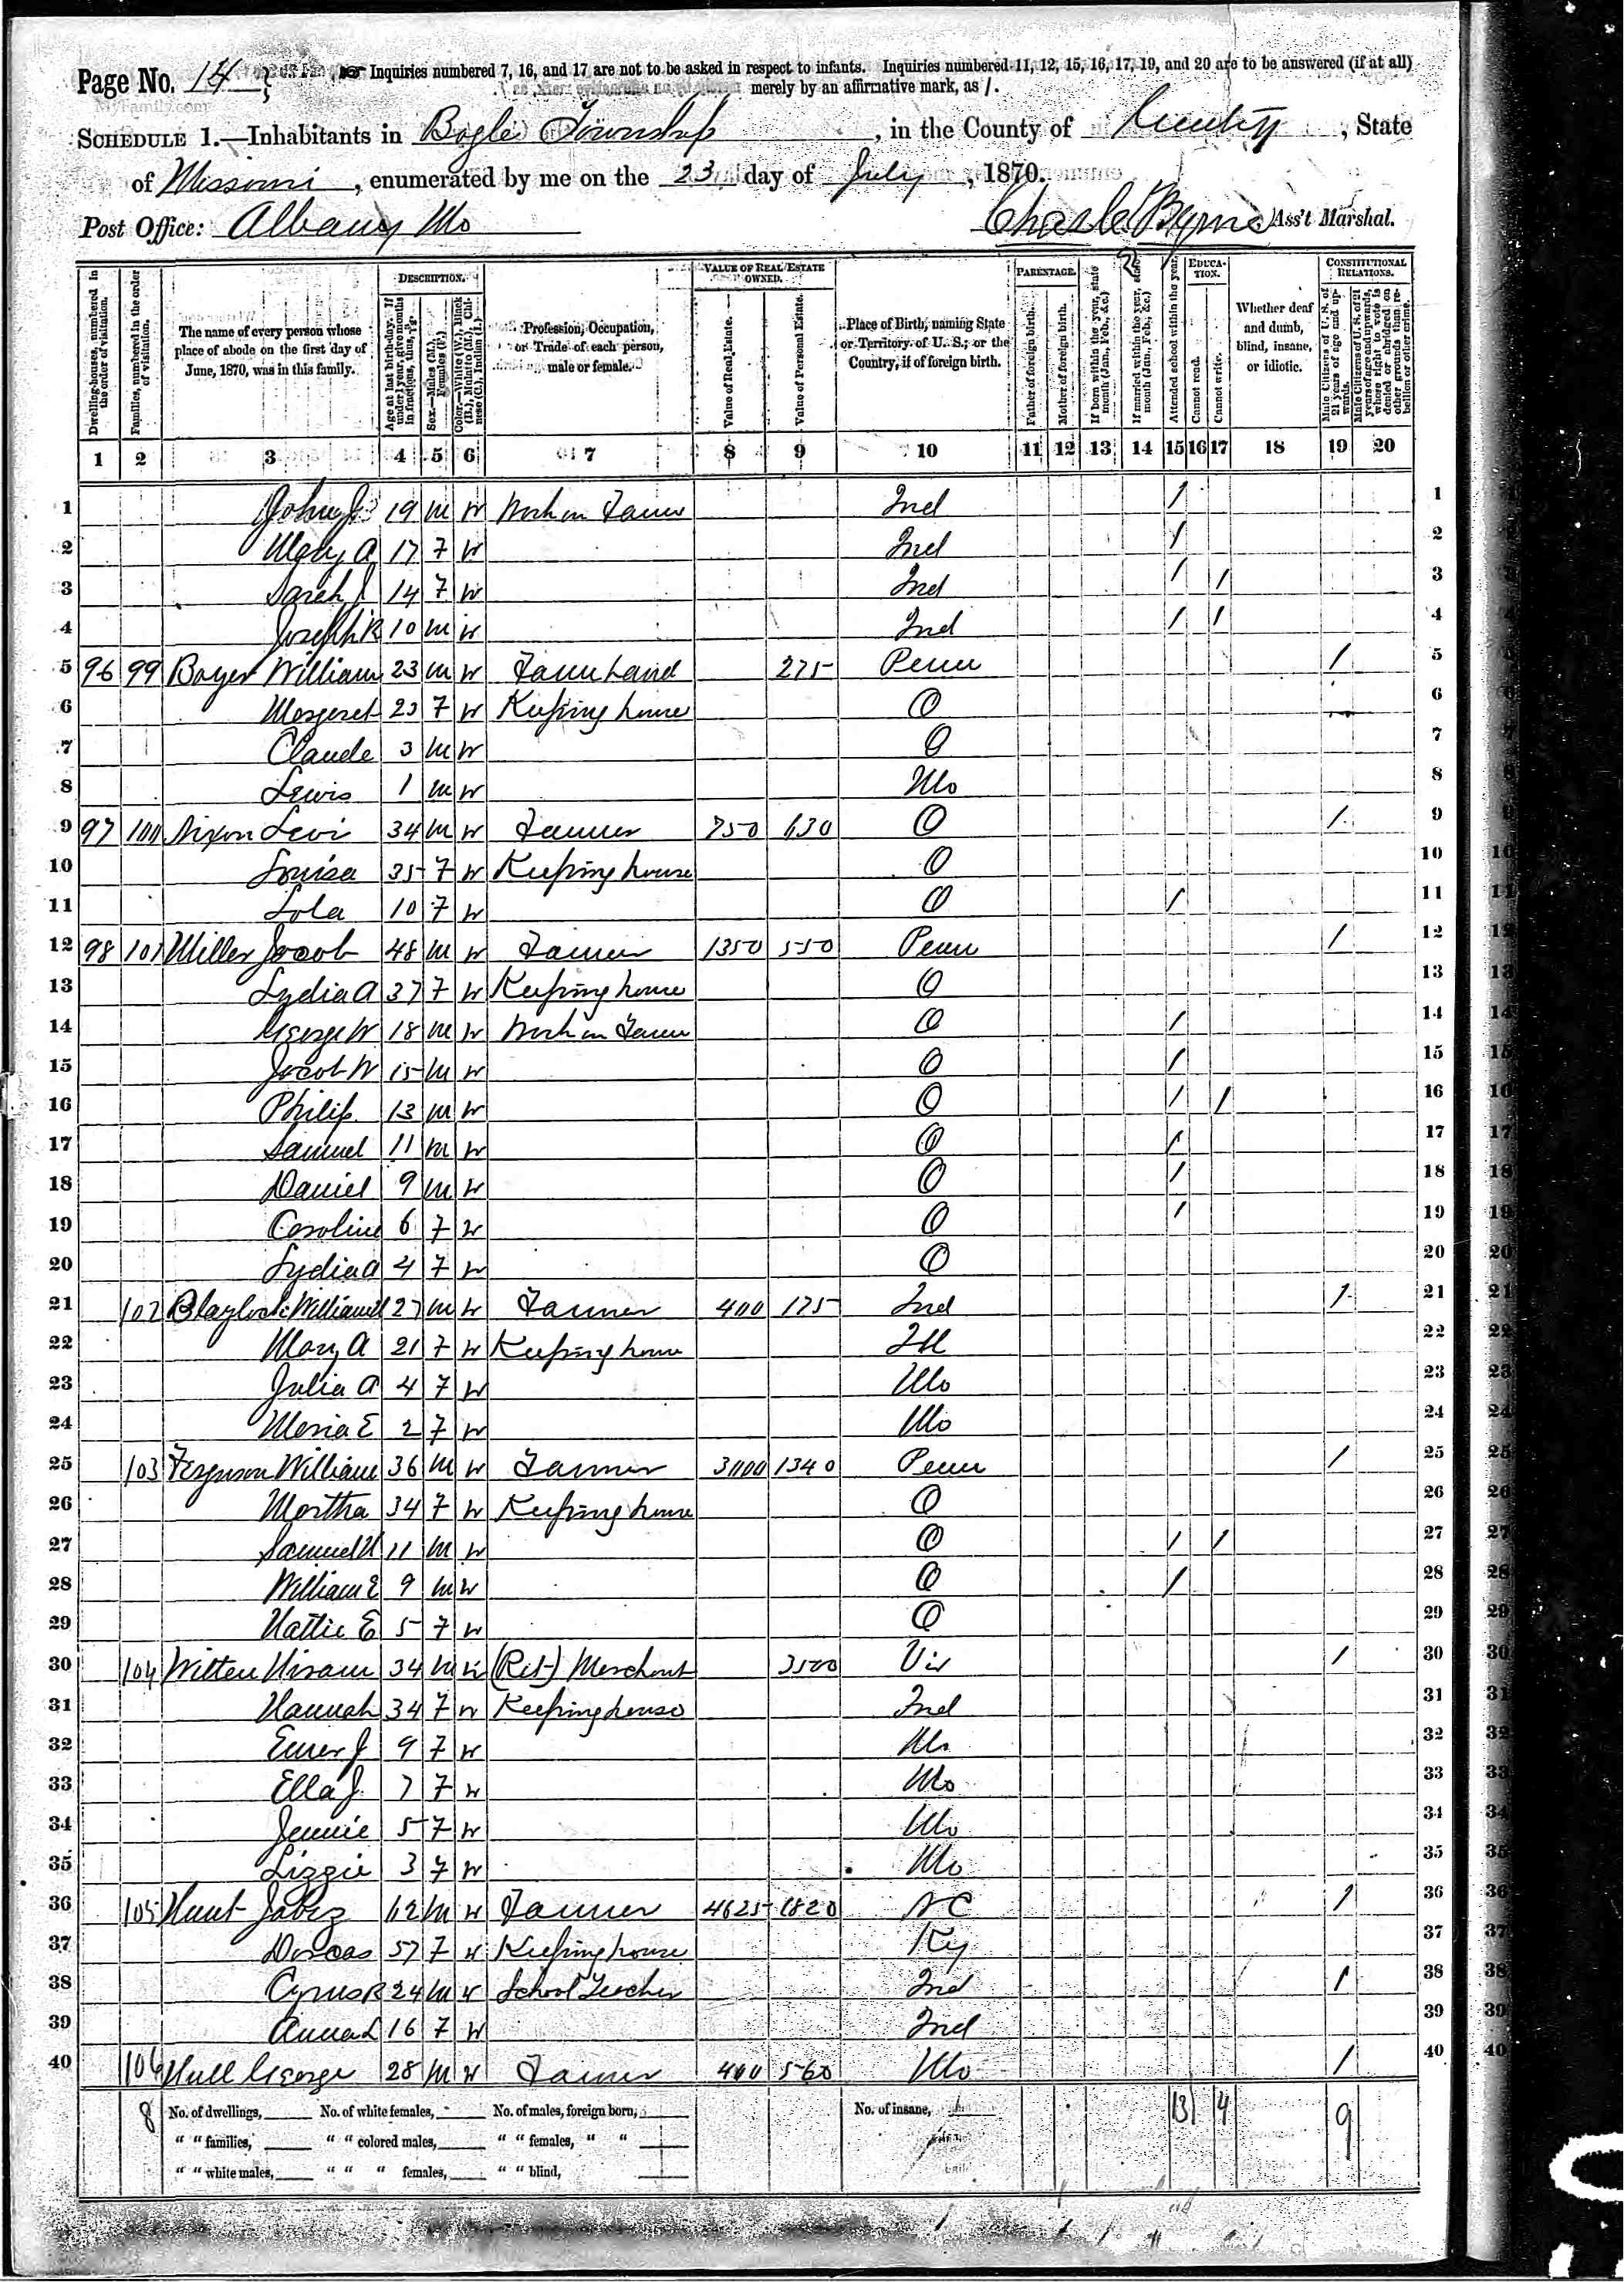 Page No. 14 } Inquiries numbered 7, 16, and 17 are not to be asked in respect to infants. Inquiries numbered 11, 12, 15, 16, 17, 19, and 20 are to be answered (if at all)
merely by an affirmative mark, as /.
MyFamily.com
SCHEDULE 1.—Inhabitants in Bogle Township, in the County of , State
of Missouri, enumerated by me on the 23 day of July, 1870.
Post Office: Albany Mo Byrne Ass't Marshal.
Dwelling-houses, numbered in the order of visitation.
Families, numbered in the order of visitation.
The name of every person whose place of abode on the first day of June, 1870, was in this family.
DESCRIPTION.
Age at last birth-day. If under 1 year, give months in fractions, thus,
Sex.—Males (M.), Females (F.)
Color.—White (W.), Black (B.), Mulatto (M.), Chinese (C.), Indian (I.)
Profession, Occupation, or Trade of each person, male or female.
VALUE OF REAL ESTATE OWNED.
Value of Real Estate.
Value of Personal Estate.
Place of Birth, naming State or Territory of U. S.; or the Country, if of foreign birth.
PARENTAGE.
Father of foreign birth.
Mother of foreign birth.
If born within the year, state month (Jan., Feb., &c.)
If married within the year, state month (Jan., Feb., &c.)
Attended school within the year.
EDUCATION.
Cannot read.
Cannot write.
Whether deaf and dumb, blind, insane, or idiotic.
CONSTITUTIONAL RELATIONS.
Male Citizens of U. S. of 21 years of age and upwards.
Male Citizens of U. S. of 21 years of age and upwards, where right to vote is denied or abridged on other grounds than rebellion or other crime.
1 2 3 4 5 6 7 8 9 10 11 12 13 14 15 16 17 18 19 20
1 John J 19 M W Work on Farm Ind / 1
2 Mary A 17 F W Ind / 2
3 Sarah J 14 F W Ind / / 3
4 Joseph R 10 M W Ind / / 4
5 96 99 Boyer William 23 M W Farm Hand 275 Penn / 5
6 Margaret 23 F W Keeping house O 6
7 Claude 3 M W O 7
8 Lewis 1 M W Mo 8
9 97 100 Nixon Levi 34 M W Farmer 750 630 O / 9
10 Louisa 35 F W Keeping house O 10
11 Lola 10 F W O / 11
12 98 101 Miller Jacob 48 M W Farmer 1350 550 Penn / 12
13 Lydia A 37 F W Keeping house O 13
14 George W 18 M W Work on Farm O / 14
15 Jacob W 15 M W O / 15
16 Philip 13 M W O / / 16
17 Samuel 11 M W O / 17
18 Daniel 9 M W O / 18
19 Caroline 6 F W O / 19
20 Lydia A 4 F W O 20
21 102 Blaylock 27 M W Farmer 400 175 Ind / 21
22 Mary A 21 F W Keeping house Ill 22
23 Julia A 4 F W Mo 23
24 Maria E 2 F W Mo 24
25 103 Ferguson William 36 M W Farmer 3000 1340 Penn / 25
26 Martha 34 F W Keeping house O 26
27 Samuel H 11 M W O / / 27
28 William E 9 M W O / 28
29 Hattie E 5 F W O 29
30 104 Witten Hiram 34 M W (Ret) Merchant 3500 Vir / 30
31 Hannah 34 F W Keeping house Ind 31
32 J 9 F W Mo 32
33 Ella J 7 F W Mo 33
34 Jennie 5 F W Mo 34
35 Lizzie 3 F W Mo 35
36 105 Hunt Jabez 62 M W Farmer 4625 1820 NC / 36
37 Dorcas 57 F W Keeping house Ky 37
38 Cyrus R 24 M W School Teacher Ind / 38
39 Anna L 16 F W Ind 39
40 106 Hull George 28 M W Farmer 400 560 Mo / 40
8 No. of dwellings, No. of white females, No. of males, foreign born, No. of insane, 13 4 9
" " families, " " colored males, " " females, " "
" " white males, " " " females, " " blind,